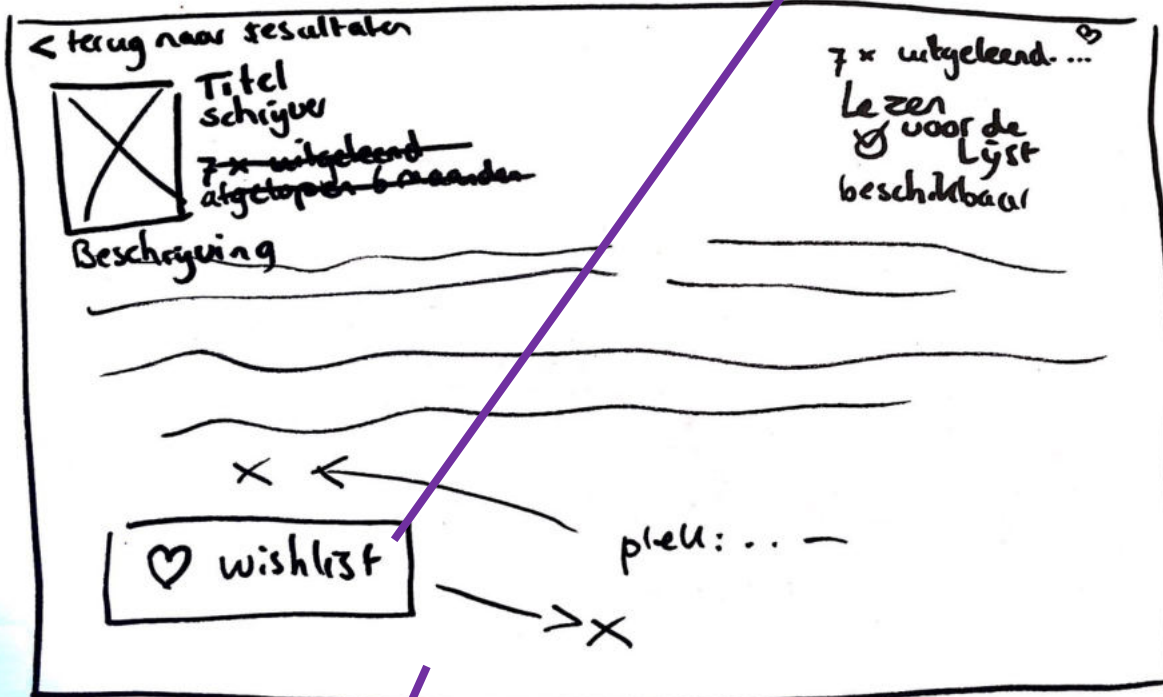 < terug naar resultaten
Titel
schrijver
7 x uitgeleend
afgelopen 6 maanden
7 x uitgeleend....
Lezen
voor de
Lijst
beschikbaar
Beschrijving
plek: .. —
♡ wishlist